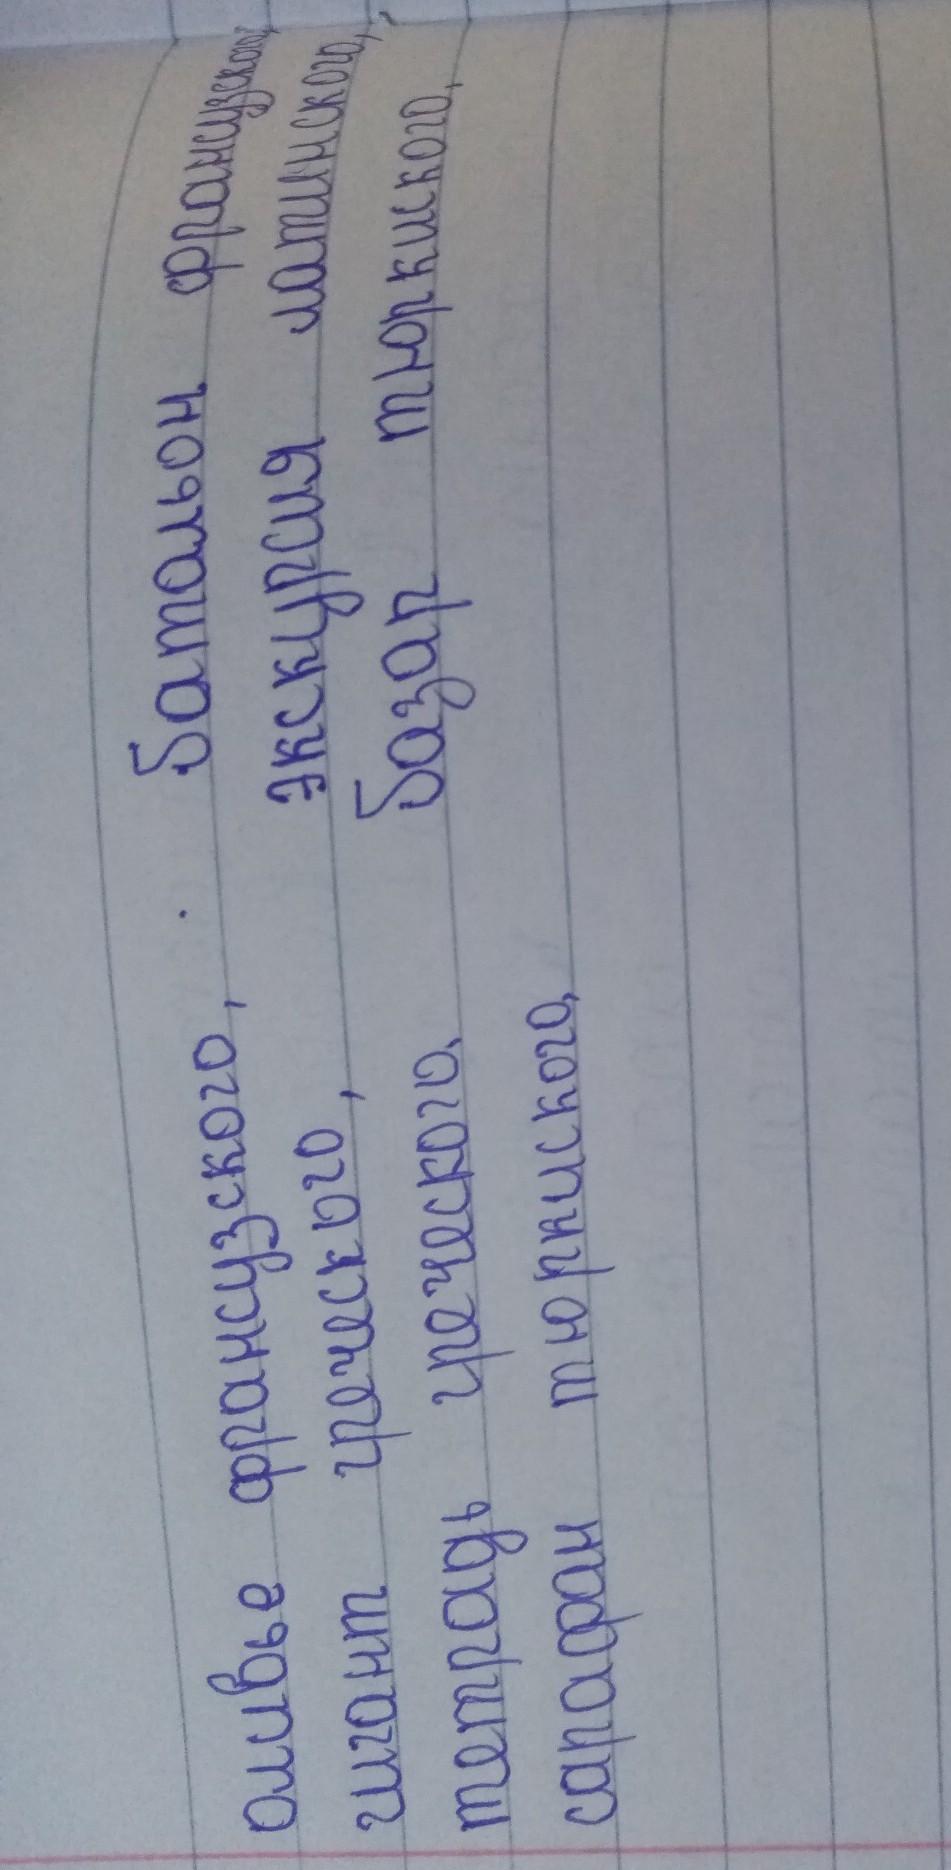 отдубе французского, баталон французского,
шпагат немецкого, экскурсия латинского,
тетрадь немецкого, базар тюркского,
сарафан тюркского,